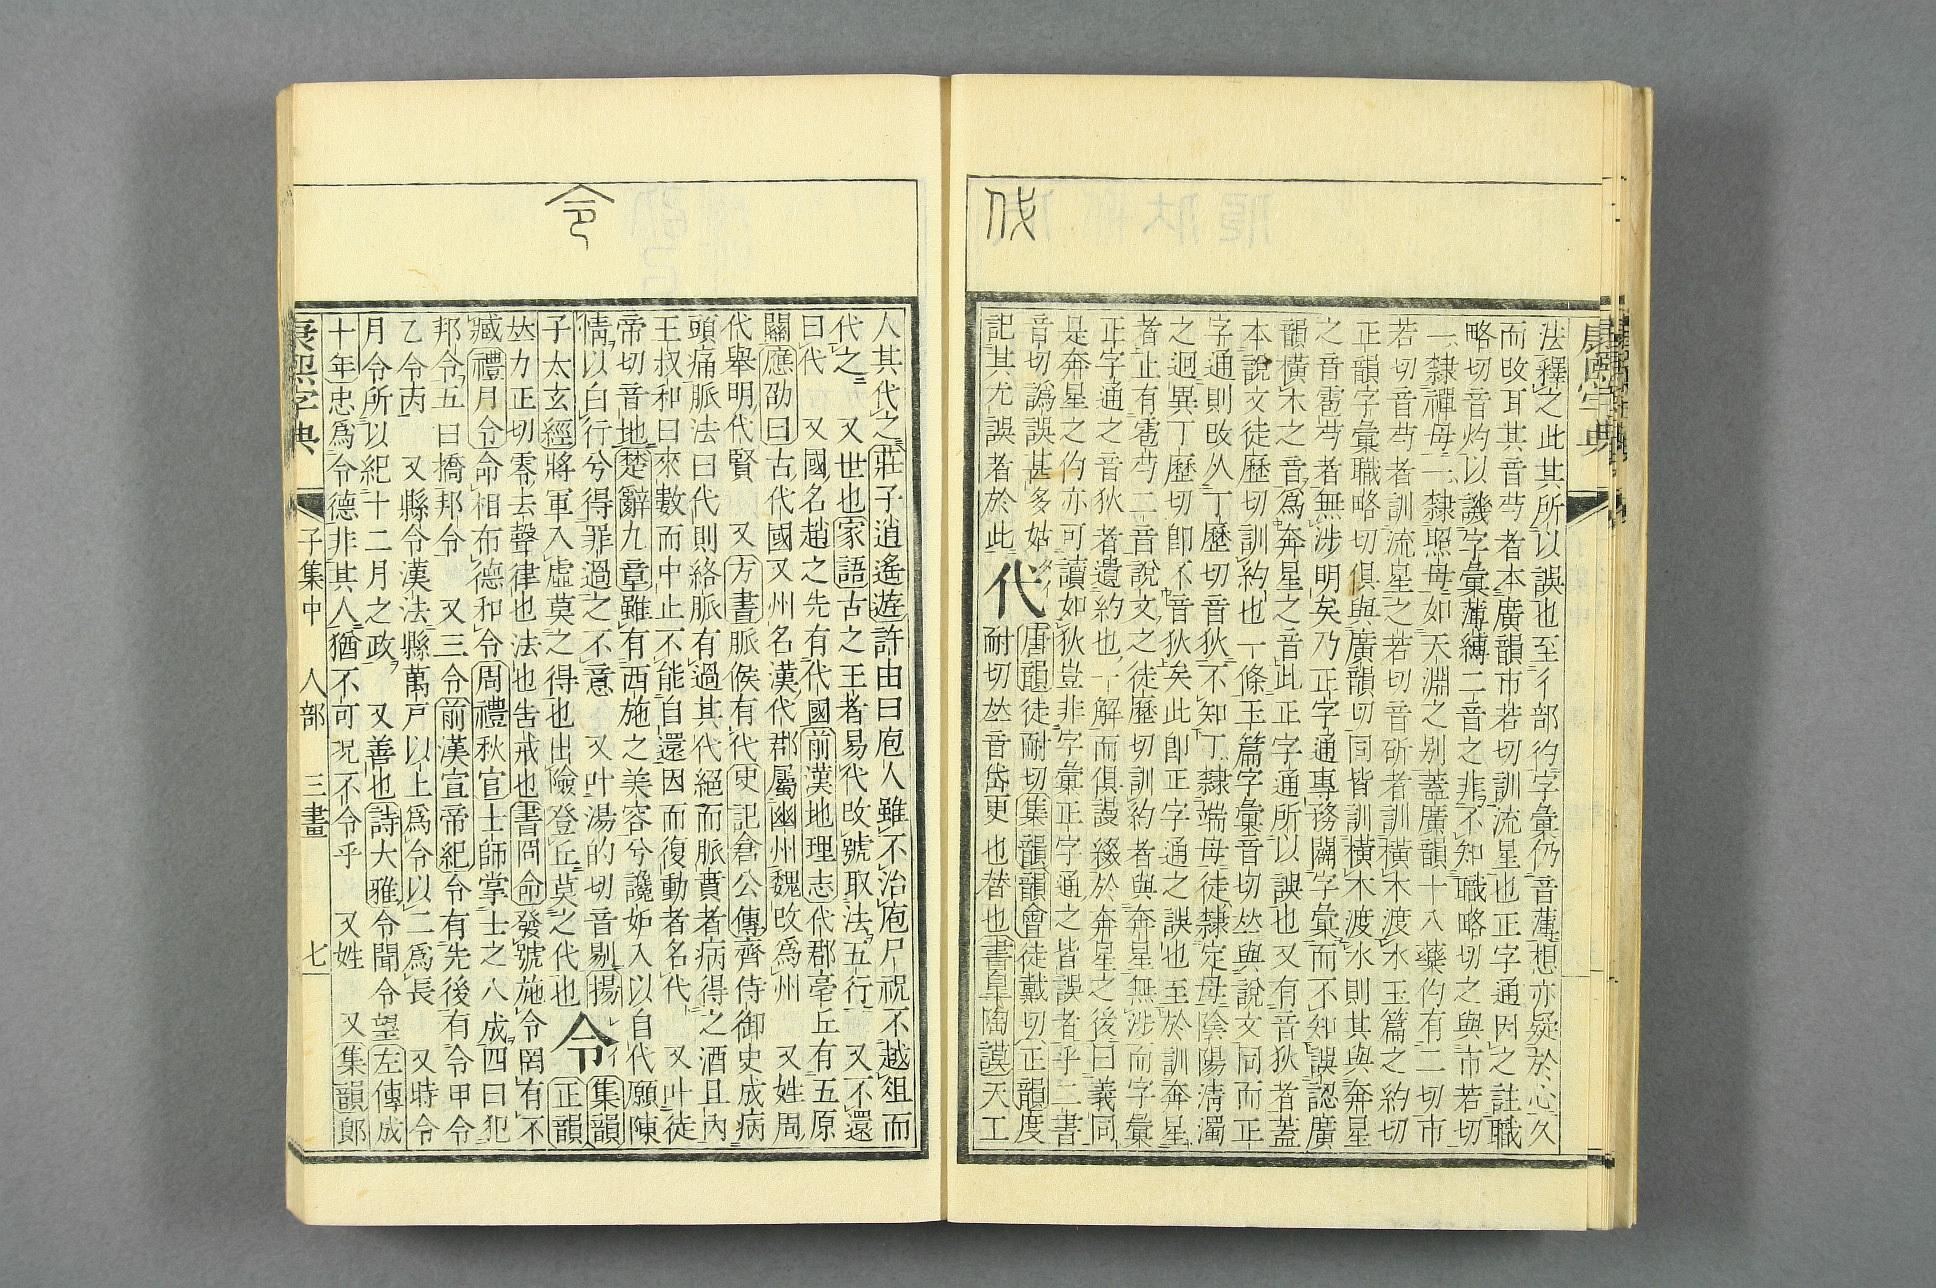 康熙字典
法釋之此其所以誤也至彳部彴字彙仍音薄想亦疑於心久
而攺耳其音芍者本廣韻市若切訓流星也正字通因之註職
略切音灼以譏字彙薄縛二音之非不知職略切之與市若切
一隸禪母一隸照母如天淵之別蓋廣韻十八藥仢有二切市
若切音芍者訓流星之若切音斫者訓橫木渡水玉篇之約切
正韻字彙職略切俱與廣韻切同皆訓橫木渡水則其與奔星
之音雹芍者無涉明矣乃正字通專務闢字彙而不知誤認廣
韻橫木之音爲奔星之音此正字通所以誤也又有音狄者蓋
本說文徒歷切訓約也一條玉篇字彙音切𠀤與說文同而正
字通則攺从丁歷切音狄不知丁隸端母徒隸定母陰陽清濁
之迥異丁歷切卽不音狄矣此卽正字通之誤也至於訓奔星
者止有雹芍二音說文之徒歷切訓約者與奔星無涉而字彙
正字通之音狄者遺約也一解而俱謾綴於奔星之後曰義同
是奔星之仢亦可讀如狄豈非字彙正字通之皆誤者乎二書
音切譌誤甚多姑
記其尤誤者於此
代
代
唐韻徒耐切集韻韻會徒戴切正韻度
耐切𠀤音岱更也替也書皐陶謨天工
人其代之莊子逍遙遊許由曰庖人雖不治庖尸祝不越俎而
代之 又世也家語古之王者易代攺號取法五行 又不還
曰代 又國名趙之先有代國前漢地理志代郡亳丘有五原
關應劭曰古代國又州名漢代郡屬幽州魏攺爲州 又姓周
代舉明代賢 又方書脈候有代史記倉公傳齊侍御史成病
頭痛脈法曰代則絡脈有過其代絕而脈賁者病得之酒且內
王叔和曰來數而中止不能自還因而復動者名代 又叶徒
帝切音地楚辭九章雖有西施之美容兮讒妒入以自代願陳
情以白行兮得罪過之不意 又叶湯的切音剔揚
子太玄經將軍入虛莫之得也出險登丘莫之代也
令
令
集韻
正韻
𠀤力正切零去聲律也法也告戒也書冏命發號施令罔有不
臧禮月令命相布德和令周禮秋官士師掌士之八成四曰犯
邦令五曰撟邦令 又三令前漢宣帝紀令有先後有令甲令
乙令丙 又縣令漢法縣萬戸以上爲令以二爲長 又時令
月令所以紀十二月之政 又善也詩大雅令聞令望左傳成
十年忠爲令德非其人猶不可況不令乎 又姓 又集韻郞
康熙字典 子集中 人部 三畫 七